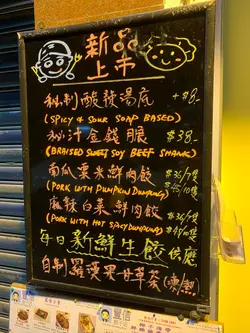 新品
上市
秘制酸辣湯底 +$8-
(SPICY & SOUR SOAP BASED)
秘汁金錢腱 $38-
(BRAISED SWEET SOY BEEF SHANK)
南瓜粟米鮮肉餃 $36/7隻
(PORK WITH PUMPKIN DUMPLING) $45/10隻
麻辣白菜鮮肉餃 $36/7隻
(PORK WITH HOT SPICY DUMPLING) $45/10隻
每日新鮮生餃供應
自制羅漢果母草茶(凍/熱)